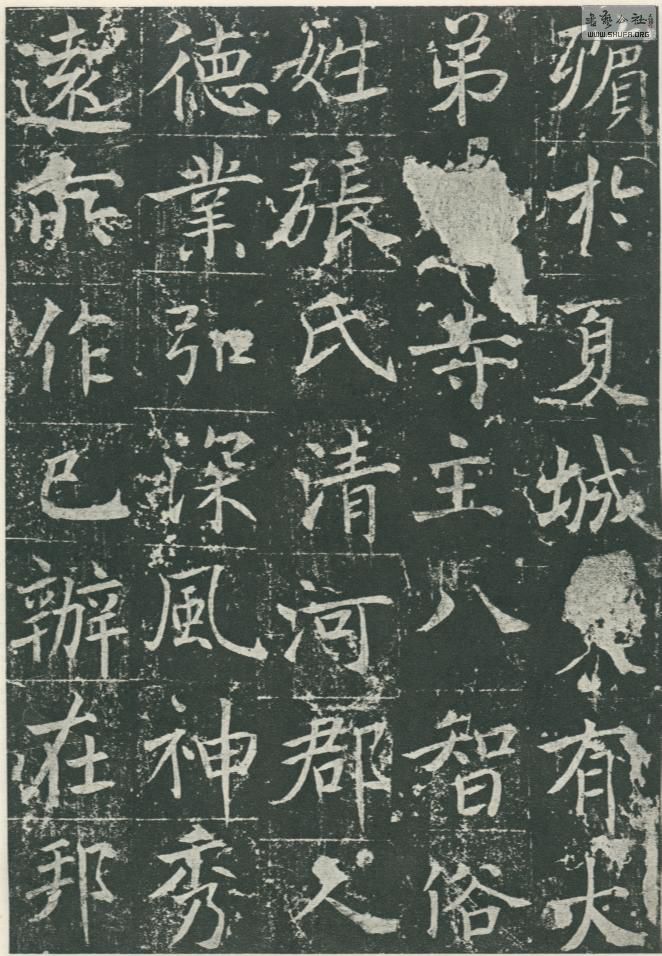 殞於夏城有大
弟寺主八智俗
姓張氏清河郡人
德業弘深風神秀
遠所作已辦在邦
書藝公社
WWW.SHUFA.ORG